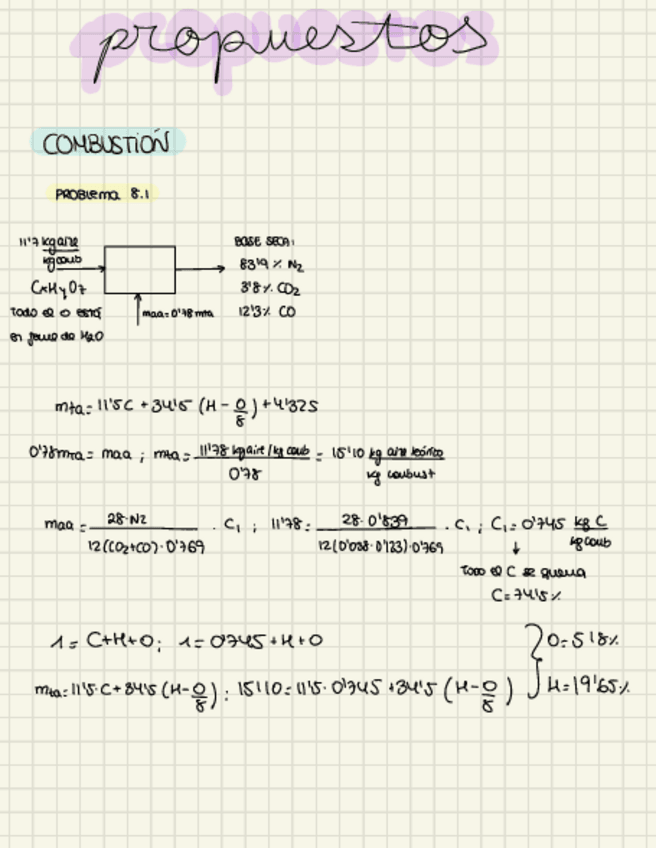 propuestos
COMBUSTIÓN
PROBLEMA 8.1
11'7 kg aire
kg comb
CxHyOz
TODO el O está
en forma de H2O
maa=0'78 mta
BASE SECA:
83'9 % N2
3'8 % CO2
12'3% CO
mta= 11'5C + 34'5 (H - O/8) + 4'32S
0'78mta = maa ; mta = 11'78 kg aire / kg comb / 0'78 = 15'10 kg aire teórico / kg combust
maa = 28·N2 / 12(CO2+CO)·0'769 · C1 ; 11'78 = 28·0'839 / 12(0'038·0'123)·0'769 · C1 ; C1 = 0'745 kg C / kg comb
↓
TODO el C se quema
C= 74'5 %
1 = C+H+O ; 1 = 0'745 + H + O
mta = 11'5·C + 34'5 (H - O/8) ; 15'110 = 11'5·0'745 + 34'5 (H - O/8)
O = 5'8%
H = 19'65 %